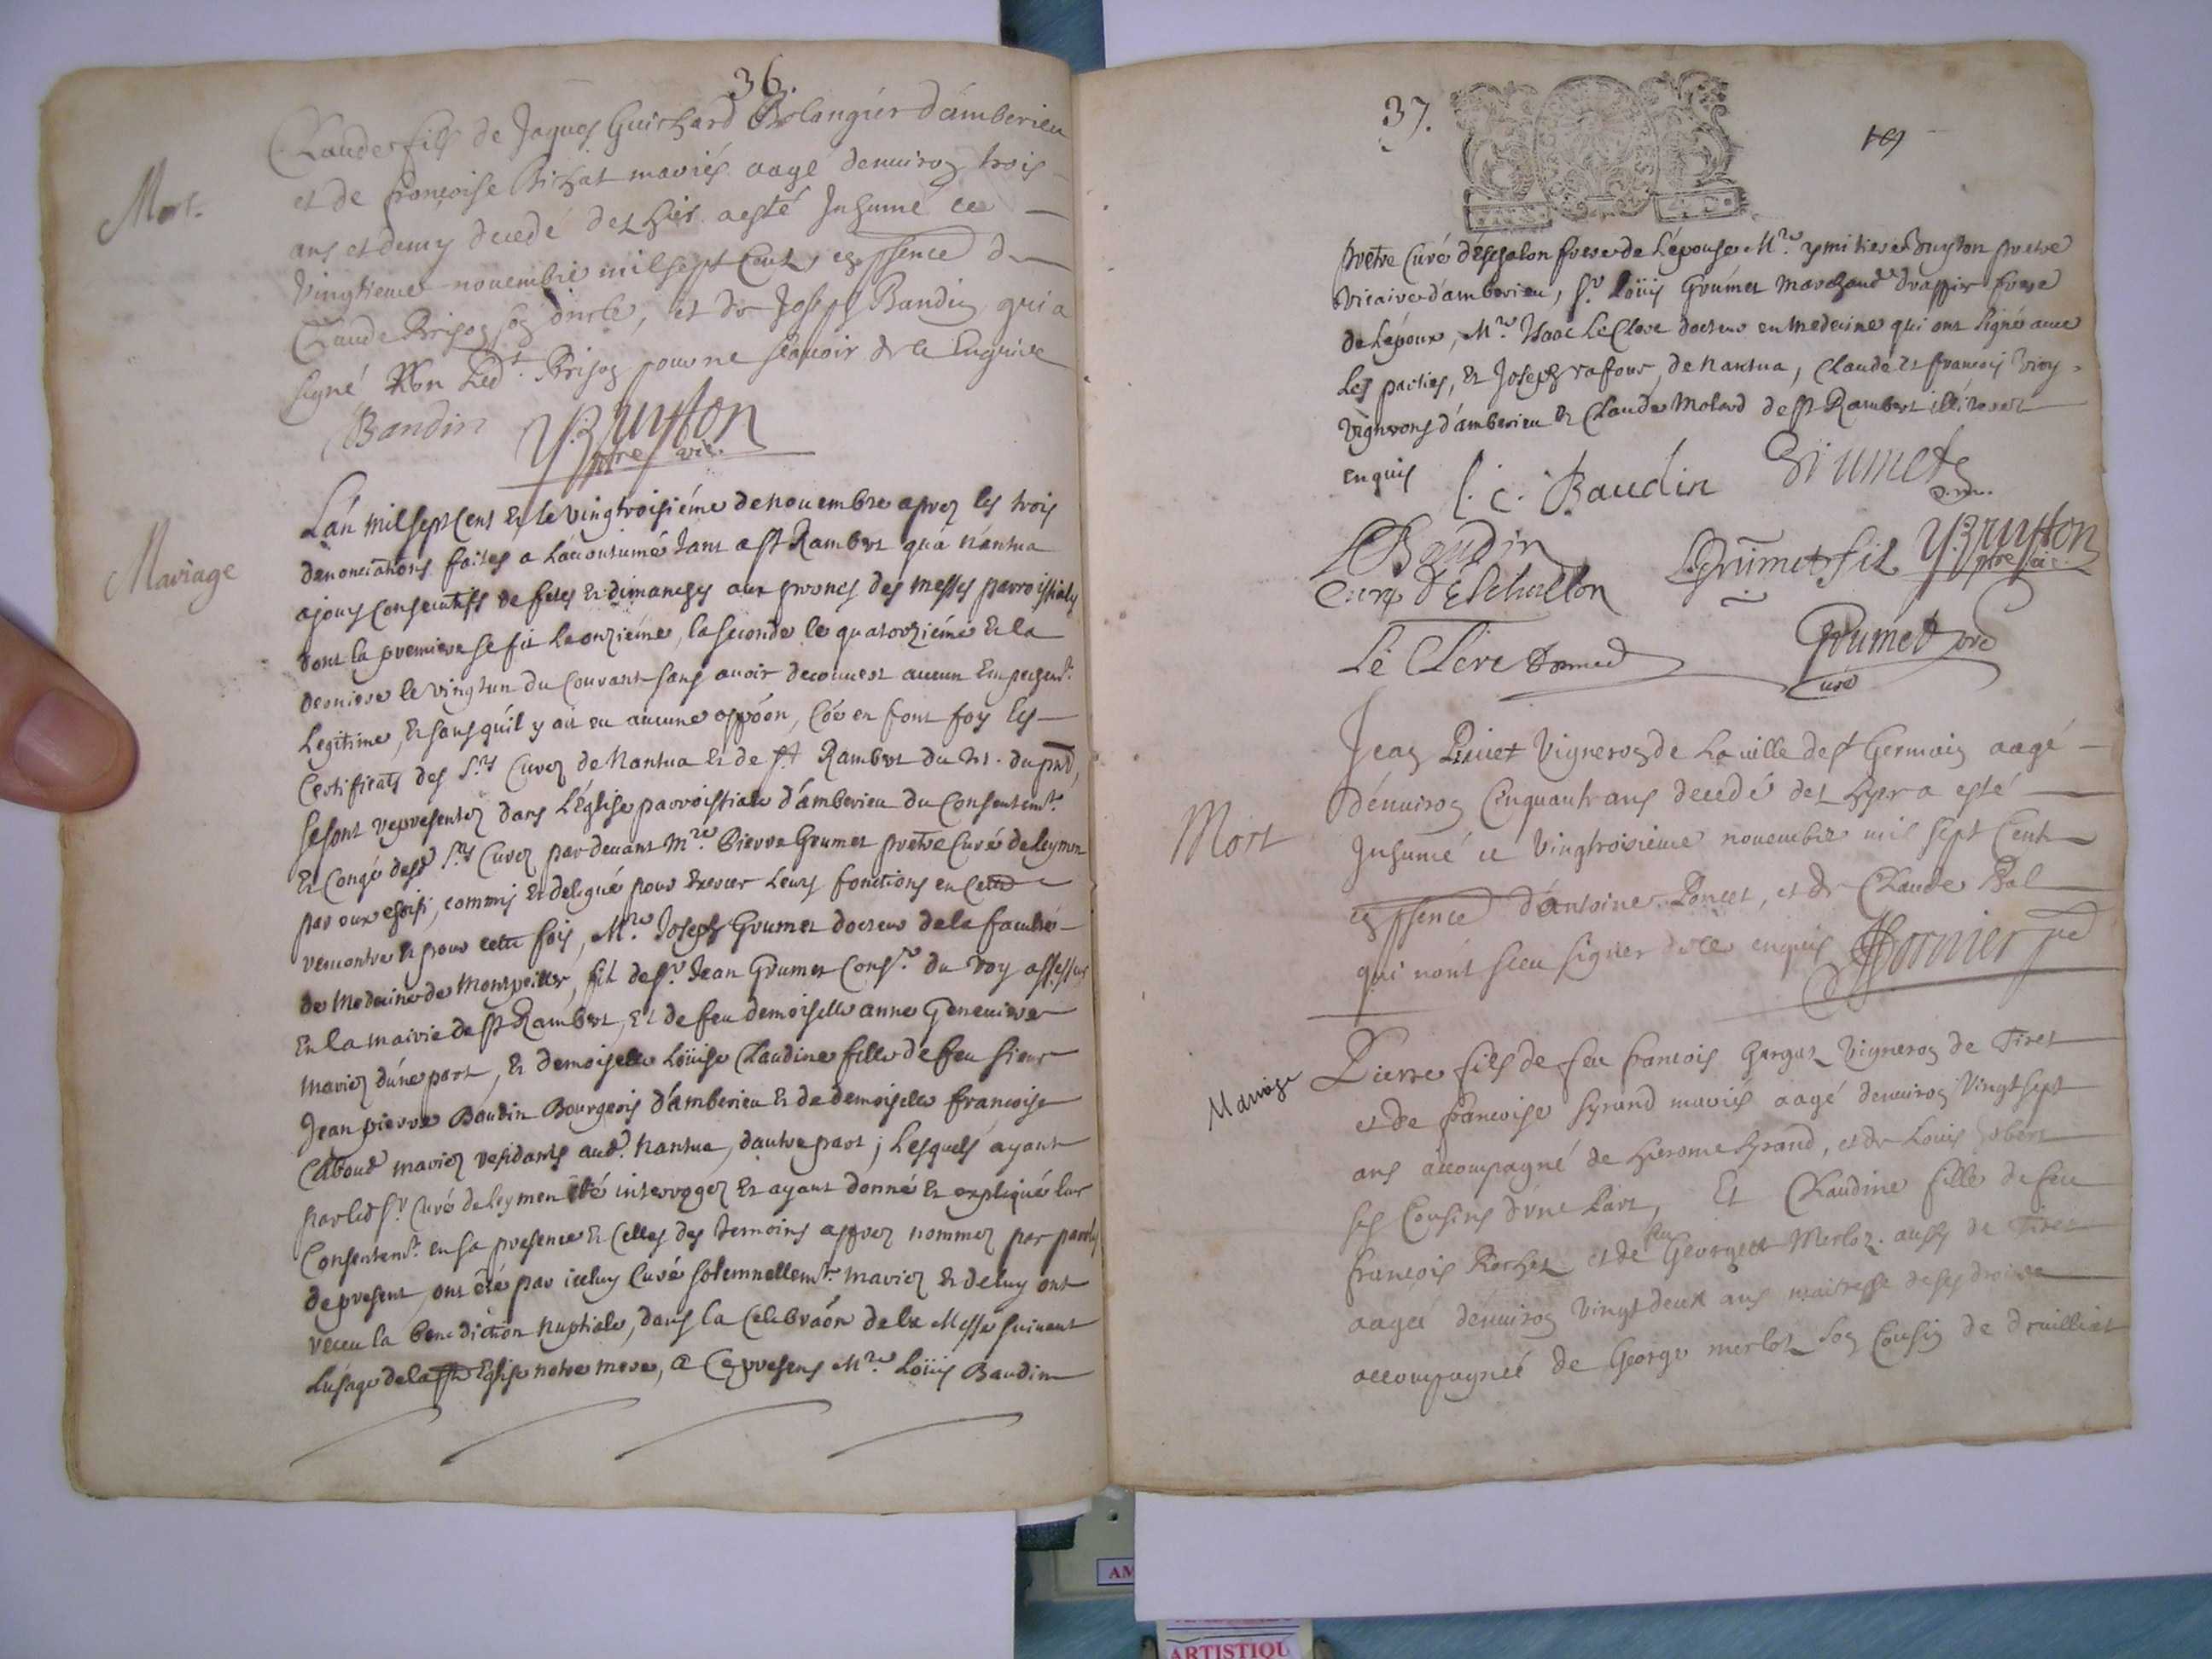 36.
Mort.
Claude fils de Jaques Guichard Bolangier d'amberieu
et de françoise Bichat mariés aagé denuiron trois
ans et demy decedé dez hier a esté Inhumé ce
Vingtieme nouembre mil sept Cent, en pssence de
Claude Brison son oncle, et de Joseph Baudin qui a
signé Non Led.t Brison pour ne sçauoir de ce Enquise
Baudin YBruyston
pbre vic.
Mariage
L'an mil sept Cent Et le vingtroisiéme de nouembre aprez les trois
denonciations faites a Lacoutumé tant a St Rambert qu'a Nantua
a jours consecutifs de festes Et dimanches aux prones des messes parroissiales
dont la premiere se fit le onziéme, la seconde le quatorziéme Et la
derniere le vingtun du Courant sans auoir decouuert aucun Empeschem.t
Legitime, Et sans qu'il y ait eu aucune oppóon, Cóe en font foy les
Certificats des S.rs Curez de Nantua Et de St Rambert du du pnt,
se sont representez dans L'église parroissiale d'amberieu du Consentem.t
Et Congé desd S.rs Curez par deuant M.re Pierre Grumet pretre Curé de Leymen
par eux choisi, commis Et delegué pour Exercer Leurs fonctions en cette
rencontre Et pour cette fois, M.re Joseph Grumet docteur de la faculté
de Medecine de Montpellier, fil de S.r Jean Grumet Cons.r du roy assesseur
En la mairie de St Rambert, Et de feu demoiselle anne Geneuieve
mariez d'une part, Et demoiselle Loüise Claudine fille de feu sieur
Jean pierre Baudin Bourgeois d'amberieu Et de demoiselle francoise
Caboud mariez residants aud. Nantua, dautre part ; Lesquels ayant
par led S.r Curé de Leymen été interrogez Et ayant donné Et expliqué leur
Consentem.t en sa presence Et Celles des temoins aprez nommez par paroles
de present, ont été par iceluy Curé solemnellem.t mariez Et de luy ont
receu la benediction nuptiale, dans la Celebráon de la Messe suiuant
L'usage de la Ste Eglise notre mere, a Ce presens M.re Loüis Baudin
37.
19
Prêtre Curé d'Eschalon frere de L'épouse M.re ymitiere Bruyston pretre
vicaire d'amberieu, S.r Loüis Grumet Marchand drappier frere
de L'époux, M.re Isaac Le Clerc docteur en Medecine qui ont signé auec
Les parties, Et Joseph rafour, de Nantua, Claude Et francois
Vignerons d'amberieu Et Claude Molard de St Rambert illiteres
enquis
l. c. Baudin Grumet
D.m.
LBaudin
Curé d'Eschallon
LGrumet fil YBruyston
pbre vic.
Le Clerc D.med Grumet pre
Curé
Mort
Jean Priuet Vigneron de La uille de St Germain aagé
d'enuiron Cinquantr ans decedé dez hyer a esté
Inhumé ce Vingtroisieme nouembre mil sept Cent
en pssence d'antoine Poncet, et de Claude Pal
qui n'ont sceu signer de ce enquis Hornier pe
Mariage
Pierre fils de feu francois Gargat Vigneron de Tiret
et de francoise Syrand mariés aagé denuiron Vingt sept
ans accompagné de hierome Syrand, et de Louis Gobert
ses Cousins d'une Part, Et Claudine fille de feu
francois Rochet et de feu Georgette Merloz aussy de Tiret
aagéé denuiron Vingt deux ans maitresse de ses droits
accompagnéé de George merlot son Cousin de druilliat
AM
ARTISTIQU